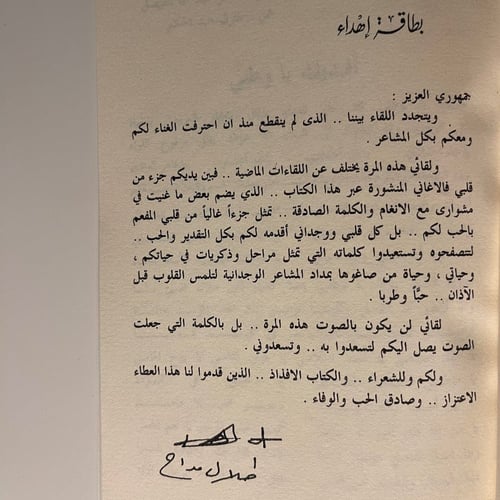 بطاقة إهداء
جمهوري العزيز :
ويتجدد اللقاء بيننا .. الذى لم ينقطع منذ ان احترفت الغناء لكم
ومعكم بكل المشاعر .
ولقائي هذه المرة يختلف عن اللقاءات الماضية .. فبين يديكم جزء من
قلبي فالاغاني المنشورة عبر هذا الكتاب .. الذي يضم بعض ما غنيت في
مشوارى مع الانغام والكلمة الصادقة .. تمثل جزءاً غالياً من قلبي المفعم
بالحب لكم .. بل كل قلبي ووجداني أقدمه لكم بكل التقدير والحب ..
لتتصفحوه وتستعيدوا كلماته التي تمثل مراحل وذكريات في حياتكم ،
وحياتي ، وحياة من صاغوها بمداد المشاعر الوجدانية لتلمس القلوب قبل
الآذان .. حبًّا وطربا .
لقائي لن يكون بالصوت هذه المرة .. بل بالكلمة التي جعلت
الصوت يصل اليكم لتسعدوا به .. وتسعدوني .
ولكم وللشعراء .. والكتاب الافذاذ .. الذين قدموا لنا هذا العطاء
الاعتزاز .. وصادق الحب والوفاء .
طلال مداح